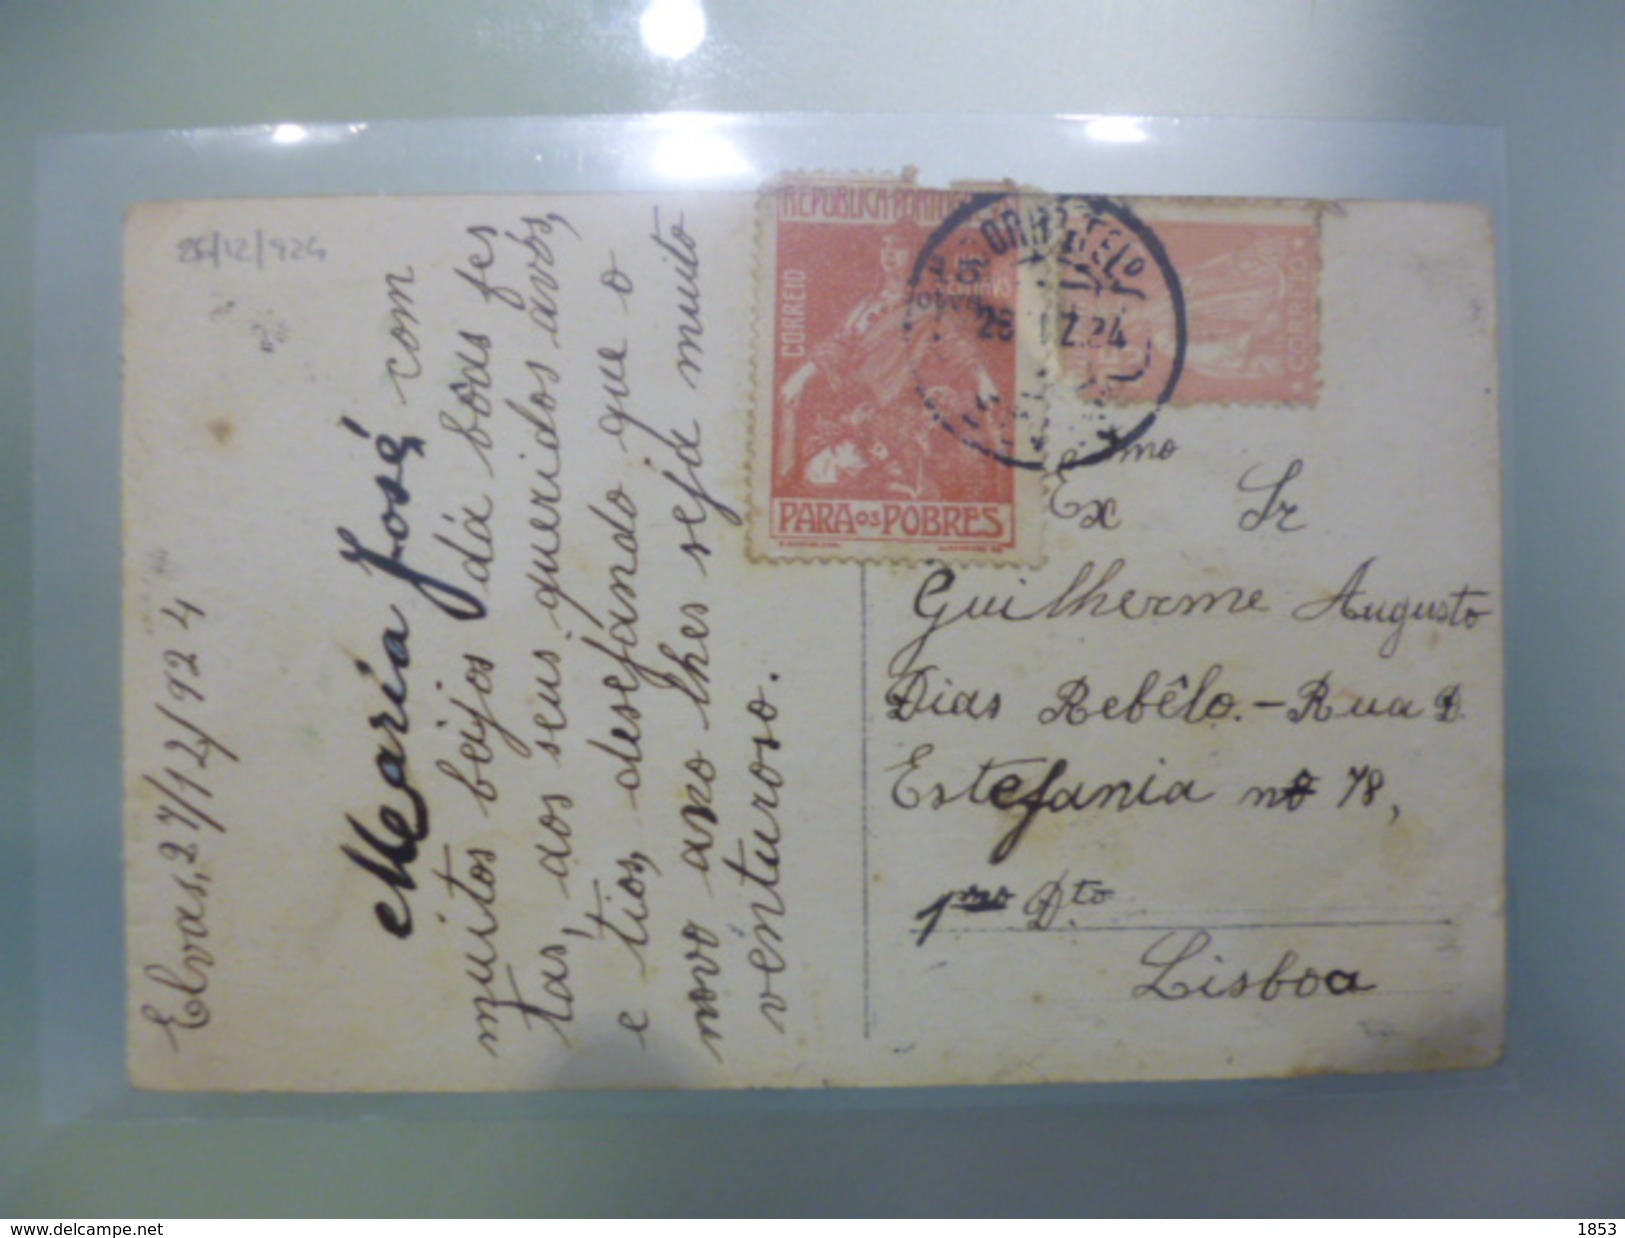 26/12/924
Elvas, 27/12/924
Maria José com
muitos beijos dá bôas fes
tas, aos seus queridos avós,
e tios, desejando que o
novo ano lhes seja muito
venturoso.
REPUBLICA PORTUG
CORREIO
PARA OS POBRES
CORREIO
26 DZ.24
Exmo Sr
Guilherme Augusto
Dias Rebêlo.-Rua D.
Estefania nº 78,
1mo Dto
Lisboa
www.delcampe.net
1853